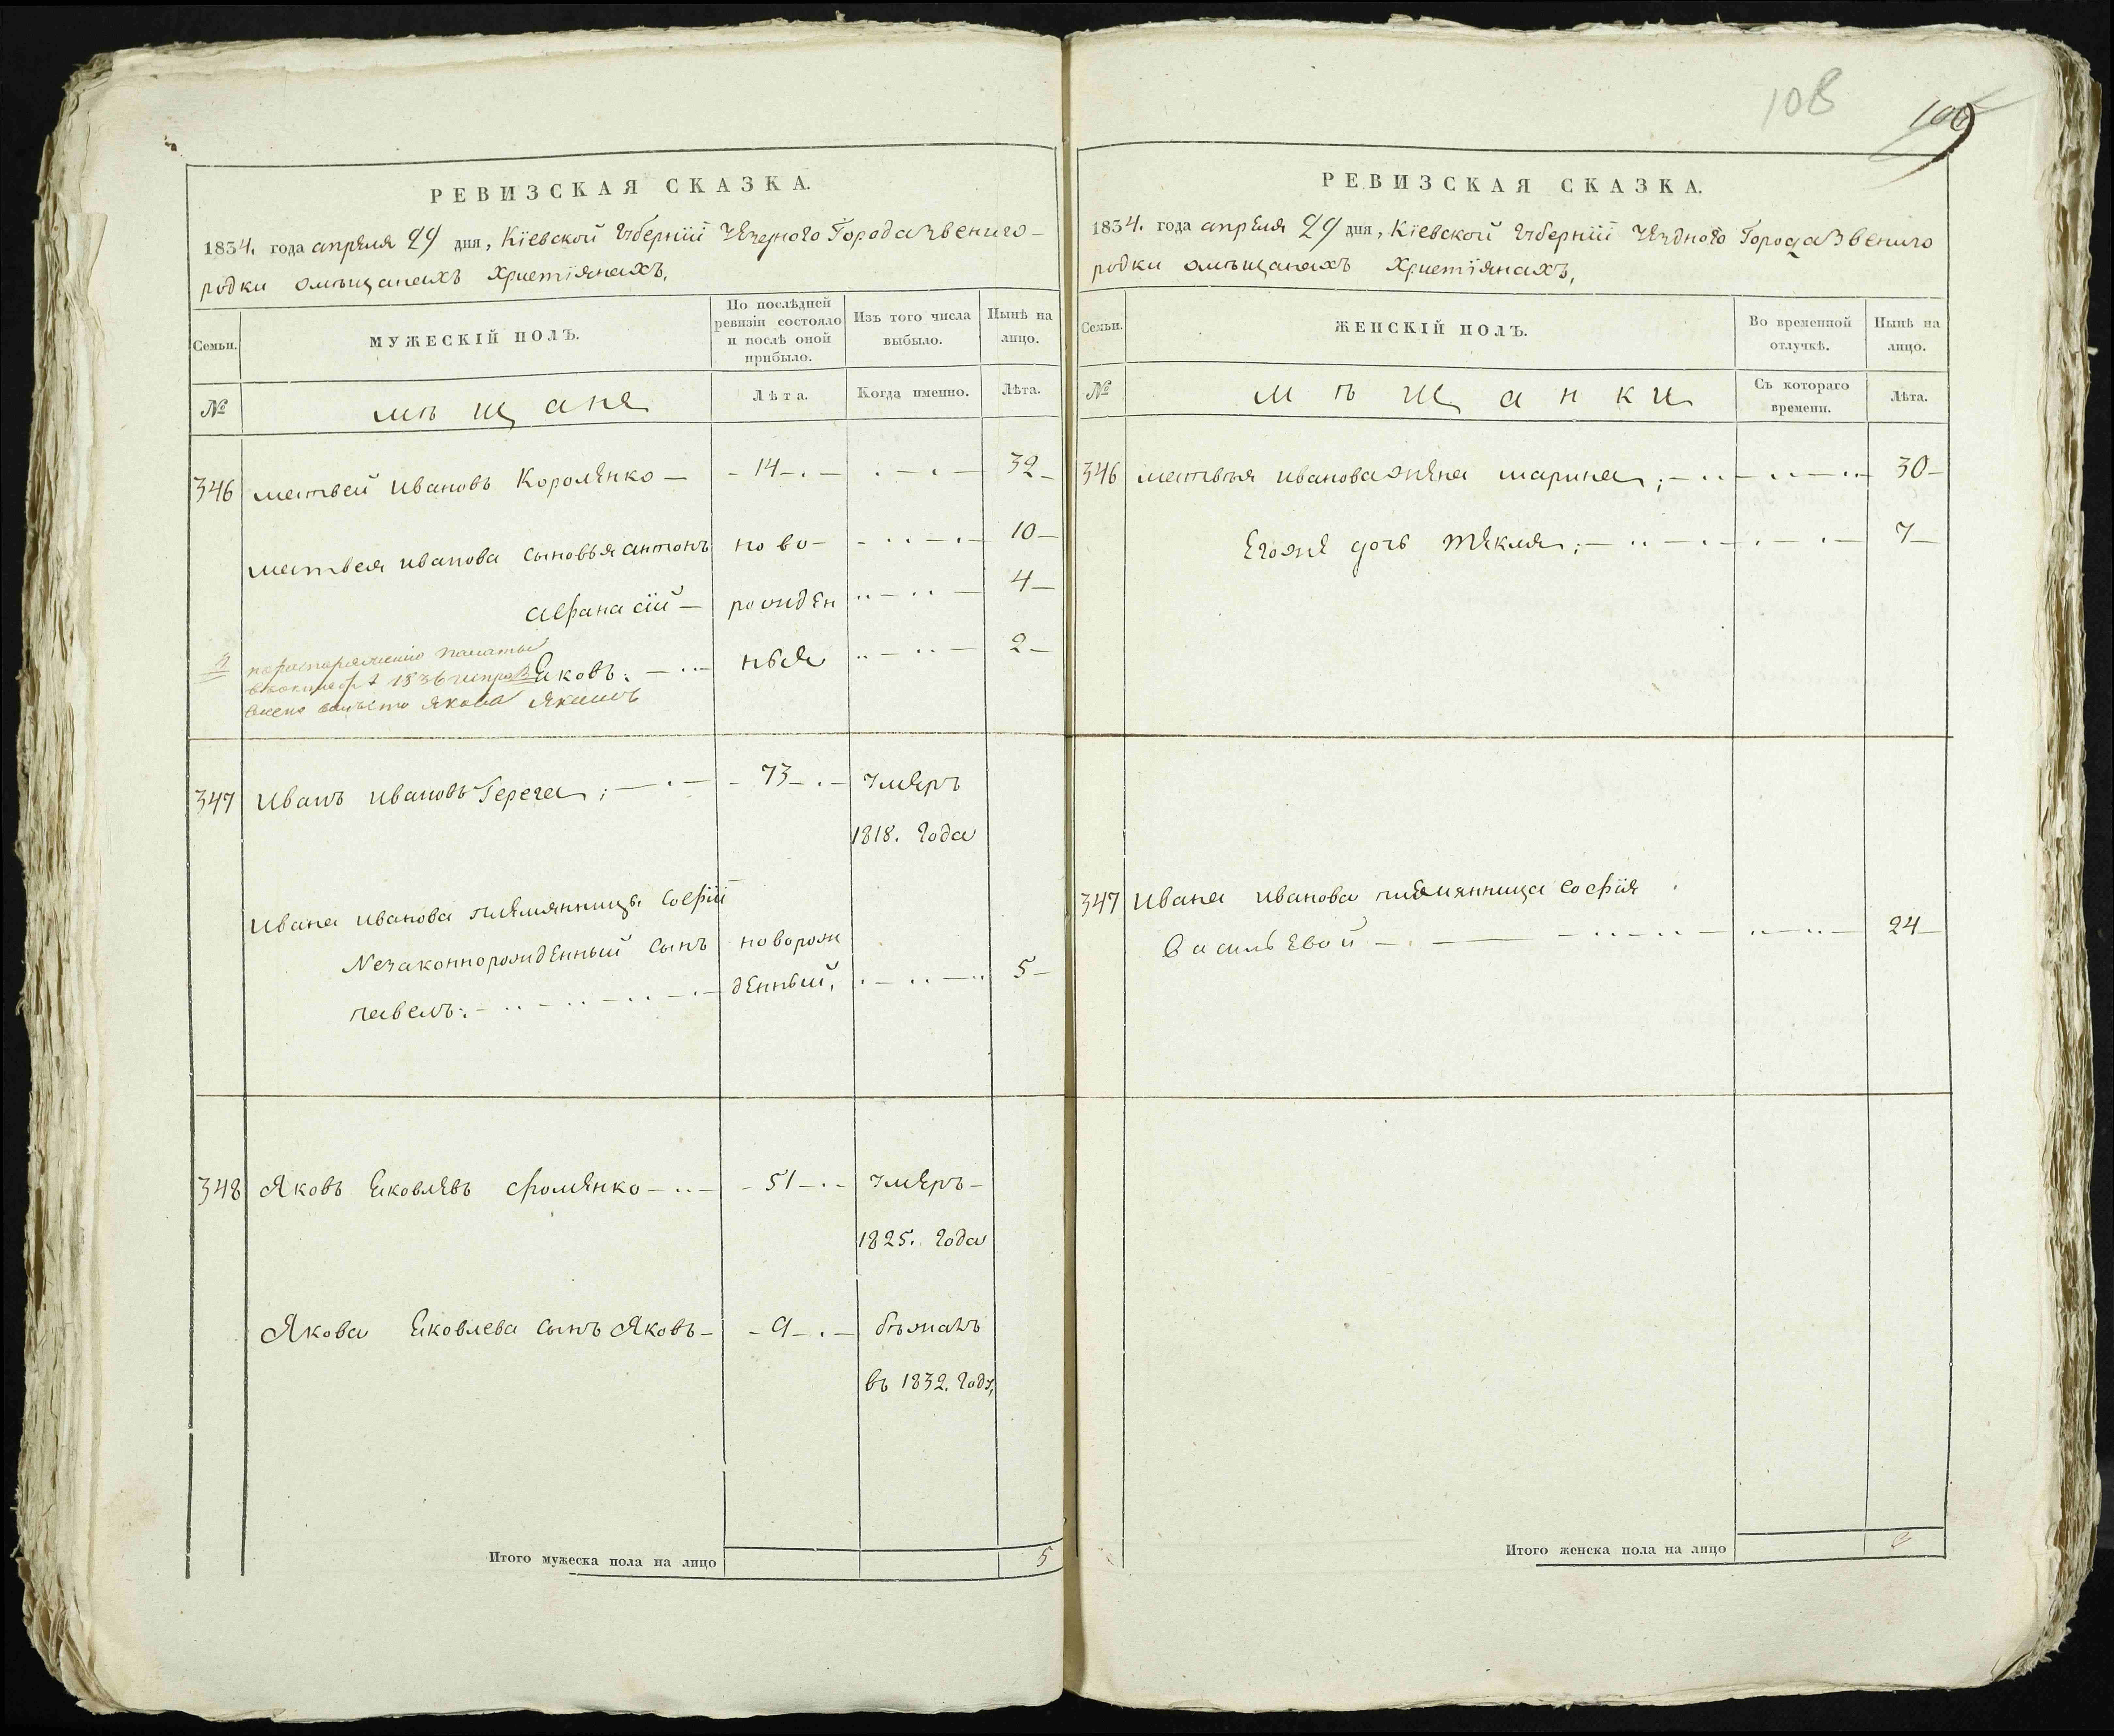 108
109
РЕВИЗСКАЯ СКАЗКА.
1834. года апреля 29 дня, Кіевской Губерніи Уезного Города Звениго-
родки омѣщанахъ христіянахъ,
Семьи.
МУЖЕСКІЙ ПОЛЪ.
По послѣдней ревизіи состояло и послѣ оной прибыло.
Изъ того числа выбыло.
Нынѣ на лицо.
№
мѣщане
Лѣта.
Когда именно.
Лѣта.
346 матвей ивановъ Короленко — 14 — 32
матвея иванова сыновья антонъ ново- 10
афанасій — рожден 4
по распоряженію палаты
1836
Яковъ: ныя 2
вместо якова Якимъ
347 иванъ ивановъ Герега; — 73 — умеръ
1818. года
ивана иванова племянницы софіи
незаконнорожденный сынъ новорож
павелъ: денный, 5
348 Яковъ Яковлевъ фоменко — 51 — умеръ —
1825. года
Якова Яковлева сынъ Яковъ — 9 — бѣжалъ
въ 1832. году,
Итого мужеска пола на лицо 5
РЕВИЗСКАЯ СКАЗКА.
1834. года апреля 29 дня, Кіевской Губерніи Уездного Города Звениго
родки омѣщанахъ христіянахъ,
Семьи.
ЖЕНСКІЙ ПОЛЪ.
Во временной отлучкѣ.
Нынѣ на лицо.
№
мѣщанки
Съ котораго времени.
Лѣта.
346 матвѣя иванова жена марина; — 30
Егоже дочь текля; — 7
347 ивана иванова племянница софія
васильевой — 24
Итого женска пола на лицо 3